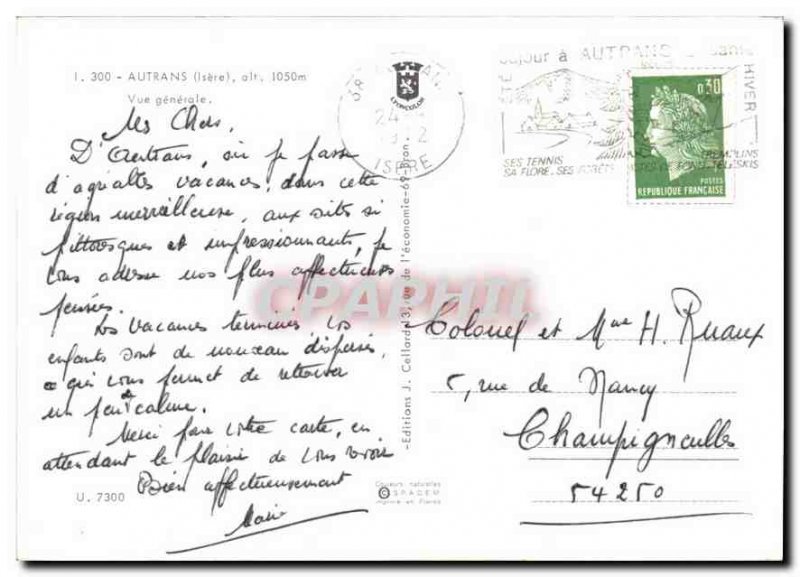 1. 300 - AUTRANS (Isère), alt. 1050m
Vue générale.
Mes Chers,
D'Autrans, où je passe
d'agréables vacances, dans cette
région merveilleuse, aux sites si
pittoresques et impressionnants, je
vous adresse nos plus affectueuses
pensées.
Les vacances terminées, vos
enfants sont de nouveau dispersés,
ce qui vous permet de retrouver
un peu de calme.
Merci pour votre carte, en
attendant le plaisir de vous revoir
Bien affectueusement
Marie
U. 7300
LYONCOLOR
24
ISERE
-Editions J. Cellard, 13, rue de l'économie-69-Bron
Couleurs naturelles
©SPADEM
Imprimé en France
séjour à AUTRANS
ÉTÉ
HIVER
SES TENNIS
SA FLORE. SES FORÊTS
TREMPLINS
TÉLÉSKIS
0,30
POSTES
REPUBLIQUE FRANÇAISE
CPAPHIL
Colonel et Mme H. Ruaux
5, rue de Nancy
Champigneulles
54250